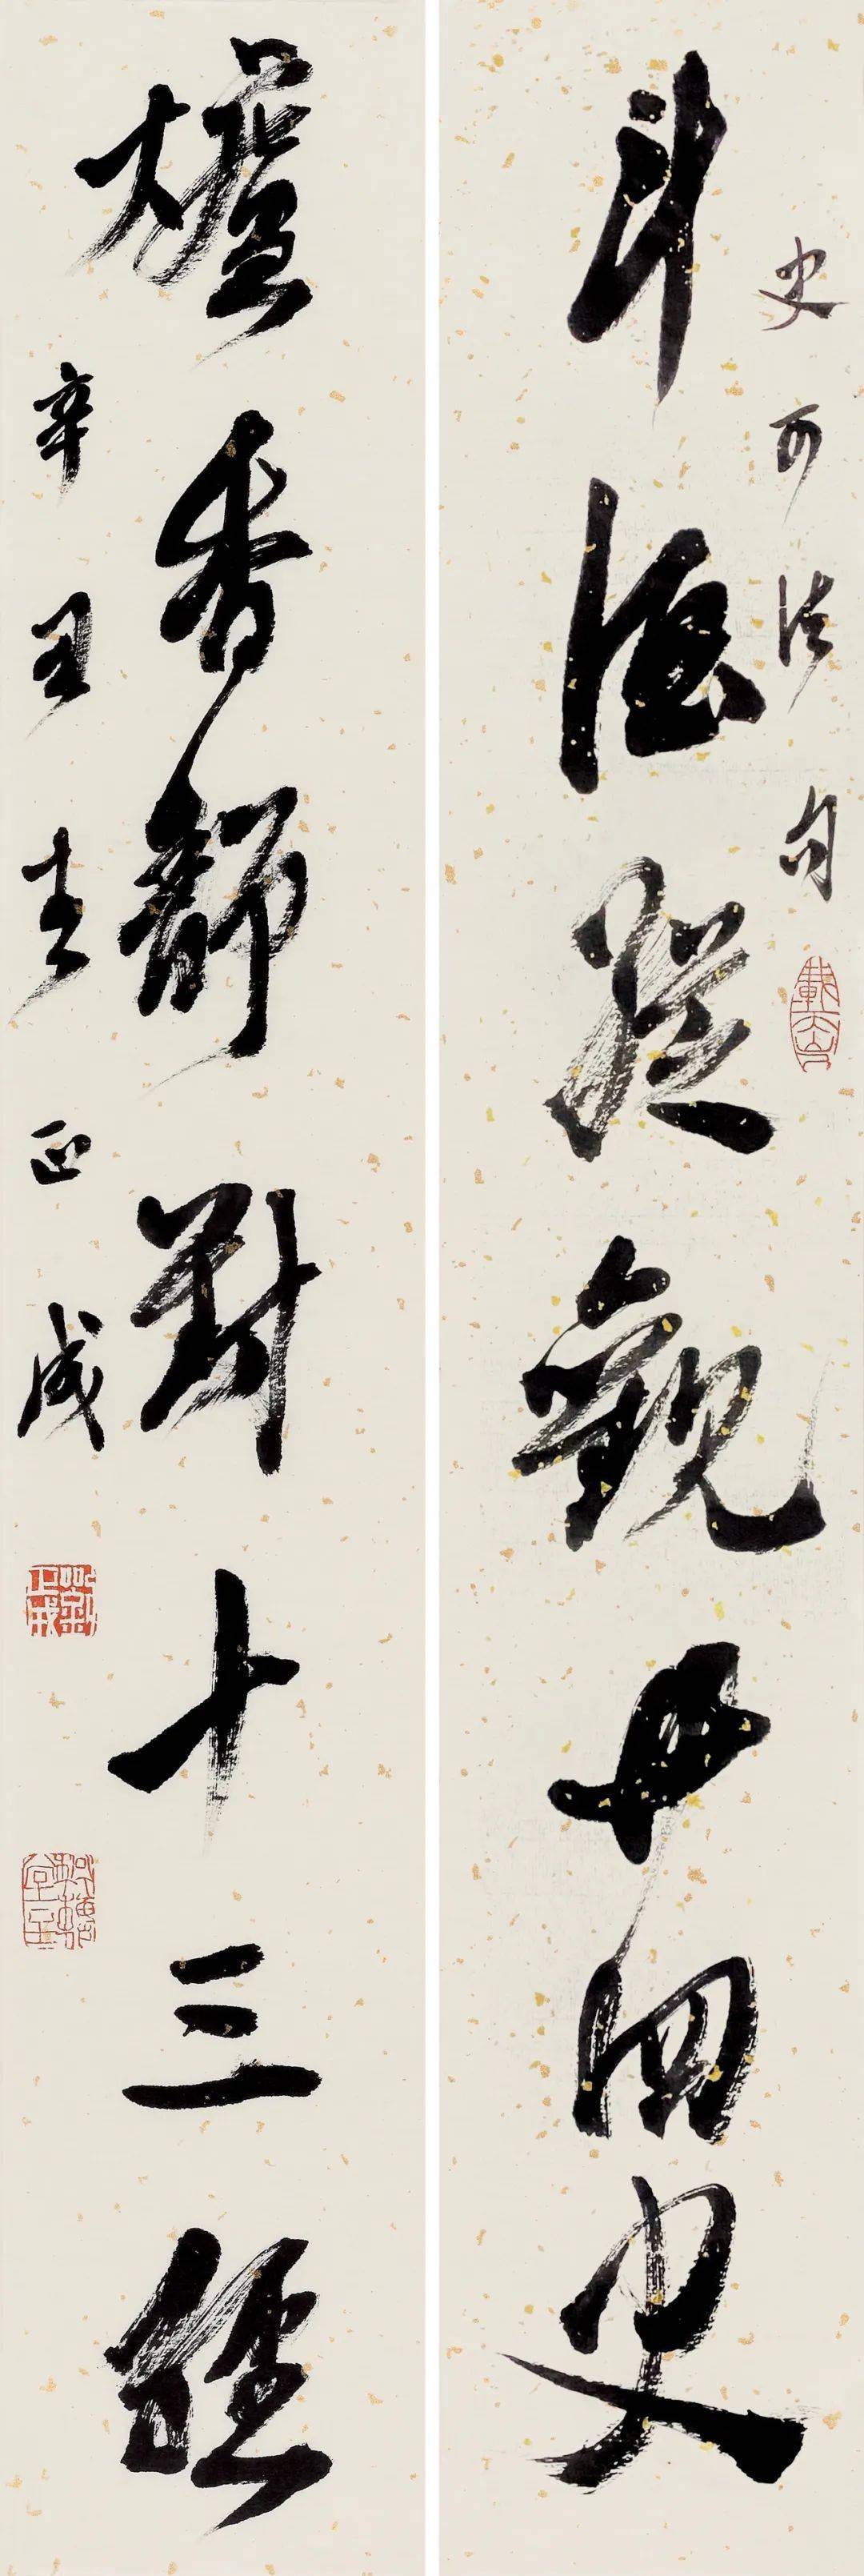 史可法句
斗酒縱觀廿四史
爐香靜對十三經
辛丑春正成